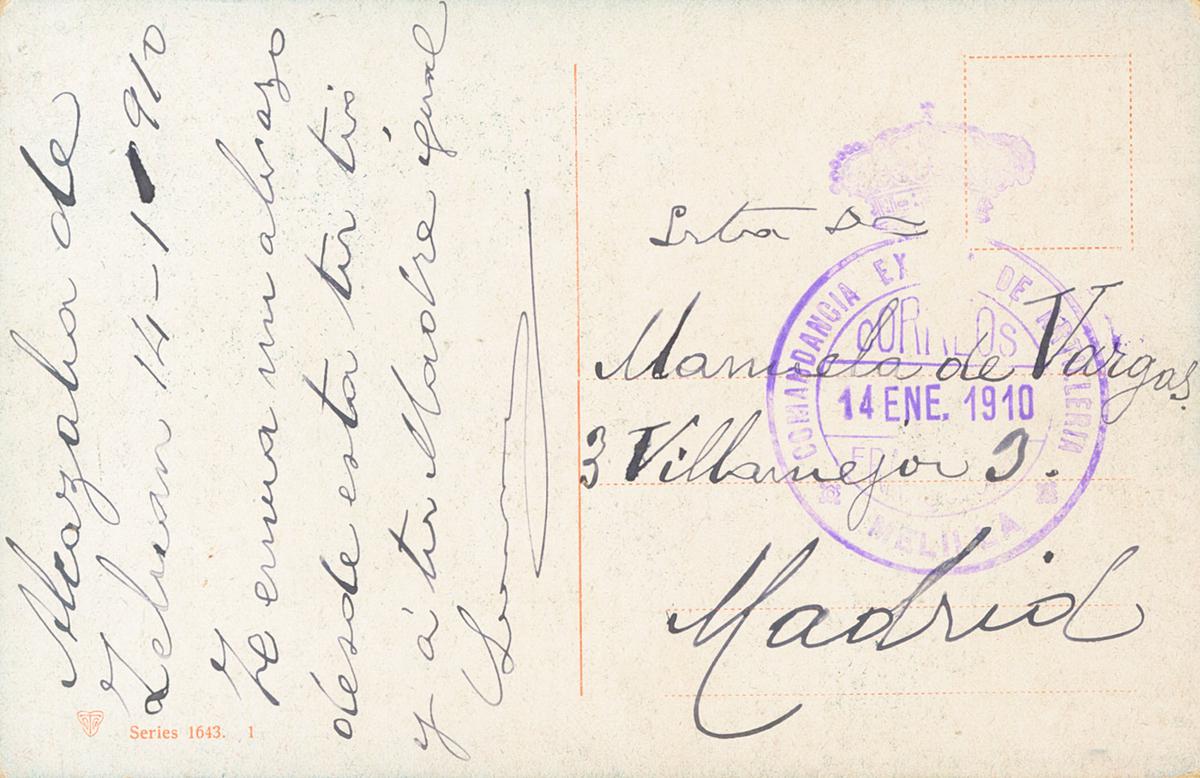 Alcazaba de
Zeluan 14-1-910
Te envia un abrazo
desde esta tu tio
y á tu Madre igual
Series 1643. 1
Srta Da
Manuela de Vargas
3 Villamejor 3.
Madrid
COMANDANCIA DE ARTILLERIA
CORREOS
14 ENE. 1910
MELILLA